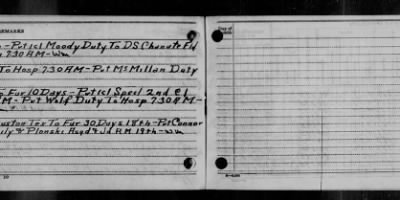 REMARKS
- Pvt 1cl Moody Duty To DS Chanute Fld
7:30 AM - Wm
To Hosp 7:30 AM - Pvt McMillan Duty
Fur 10 Days - Pvt 1cl Speci 2nd Cl
M - Pvt Wolf Duty To Hosp 7:30 AM -
ouston Tex To Fur 30 Days 18th - Pvt Connor
ily & Plonski Asgd & Jd A.M. 19th - Wm
Day of